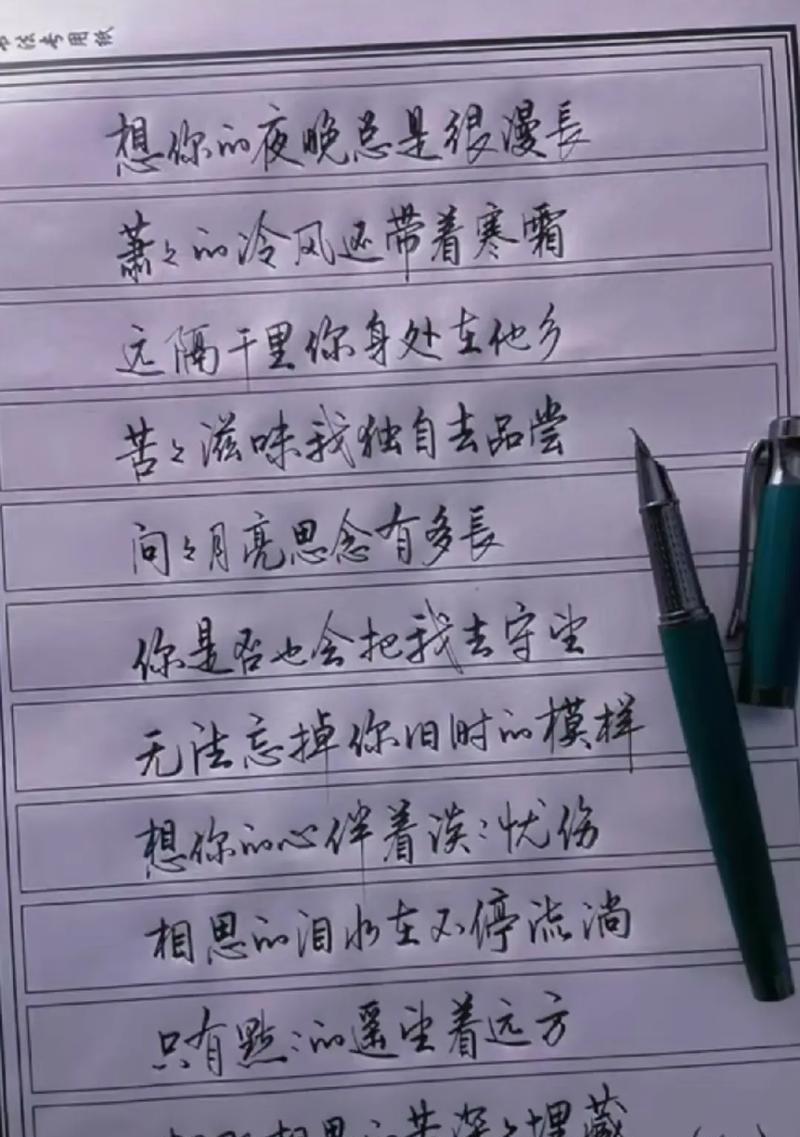 书法专用纸
想你的夜晚总是很漫長
萧々的冷风还带着寒霜
远隔千里你身处在他乡
苦々滋味我独自去品尝
问々月亮思念有多長
你是否也会把我去守望
无法忘掉你旧时的模样
想你的心伴着淡〻忧伤
相思的泪水在不停流淌
只有點〻的遥望着远方
相思之苦深々埋藏